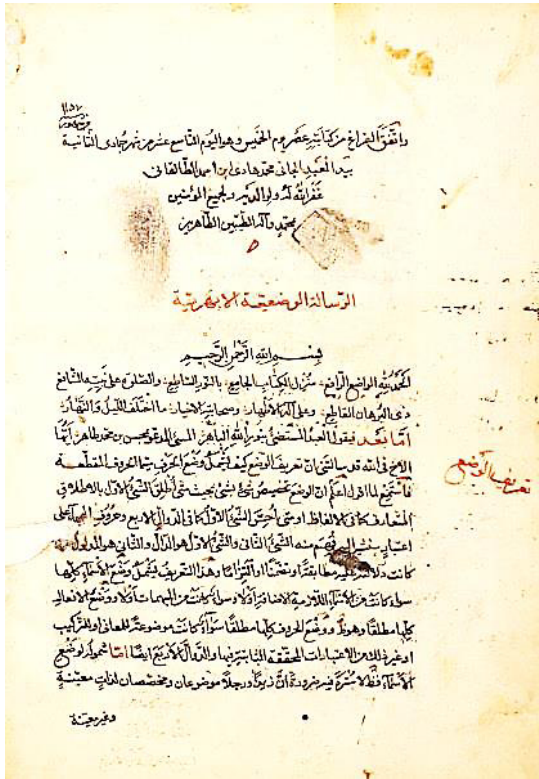 ١١٥٧
واتفق الفراغ من كتابته عصر يوم الخميس وهو اليوم التاسع عشر من شهر جمادى الثانية
بيد العبد الجاني محمد هادي ابن احمد الطالقاني
غفر الله له ولوالديه ولجميع المؤمنين
بمحمد وآله الطيبين الطاهرين
الرسالة الوضعية
بسم الله الرحمن الرحيم
الحمد لله الواضع الرافع، منزل الكتاب الجامع، بالنور الساطع، والصلوة على نبيه الشافع
ذي البرهان القاطع، وعلى آله الاطهار، وصحابته الاخيار، ما اختلف الليل والنهار،
اما بعد فيقول العبد المستضئ بنور الله الباهر المدعو بمحسن بن محمد طاهر ايها
الاخ في الله قد سالتنى ان تعريف الوضع كيف يشمل وضع الحروف سيما الحروف المقطعة
فاستمع لما اقول اعلم ان الوضع تخصيص شئ بشئ بحيث متى اطلق الشئ الاول بالاطلاق
المتعارف كما فى الالفاظ او متى احس الشئ الاول كما فى الدوال الاربع وحروف
اعتبار فهم منه الشئ الثاني والشئ الاول هو الدال والثاني هو المدلول
كانت دلالته عليه مطابقة او تضمنا او التزاما وهذا التعريف يشمل وضع الاسماء كلها
سواء كانت من الاسماء اللازمة الاضافة او لا وسواء كانت من المبهمات او لا ووضع الافعال
كلها مطلقا وهو ظ ووضع الحروف كلها مطلقا سواء كانت موضوعة للمعاني او للتركيب
او غير ذلك من الاعتبارات المحققة الثابتة فيها والدوال الاربع ايضا اما شموله لوضع
الاسماء فظ لا سترة فيه ضرورة ان زيدا ورجلا موضوعان ومخصصان لذات معينة
وغير معينة
تعريف الوضع